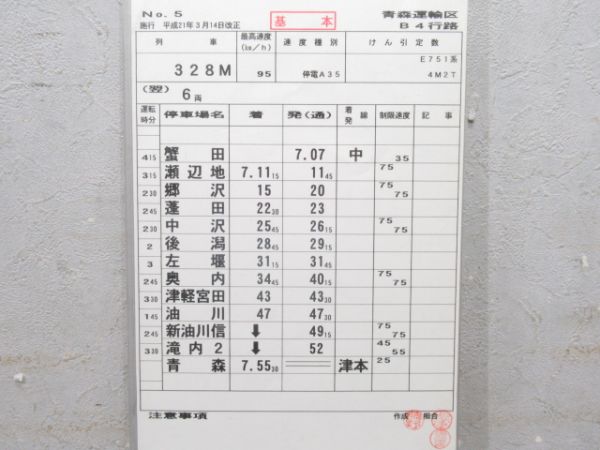 No. 5 基本 青森運輸区
施行 平成21年3月14日改正 B4行路
列車 最高速度(㎞/h) 速度種別 けん引定数
328M 95 停電A35 E751系 4M2T
(翌) 6両
運転時分 停車場名 着 発(通) 着発線 制限速度 記事
蟹田 7.07 中 35
415 瀬辺地 7.11 15 11 45 75
315 郷沢 15 20 75 75
230 蓬田 22 30 23 75
245 中沢 25 45 26 15 75 75
230 後潟 28 45 29 15
2 左堰 31 15 31 45
3 奥内 34 45 40 15 75 75
245 津軽宮田 43 43 30
330 油川 47 47 30
145 新油川信 ↓ 49 15 75 75
245 滝内2 ↓ 52 45 55
330 青森 7.55 30 津本 25
注意事項 作成 照合